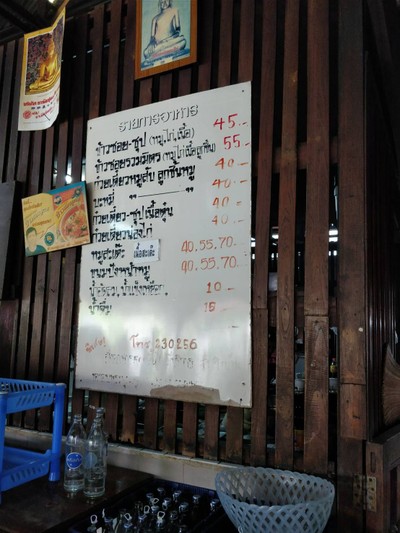 รายการอาหาร
ข้าวซอย-ซุป (หมู,ไก่,เนื้อ) 45.-
ข้าวซอยรวมมิตร (หมู,ไก่,เนื้อ,ลูกชิ้น) 55.-
ก๋วยเตี๋ยวหมูสับ ลูกชิ้นหมู 40.-
บะหมี่ " 40.-
ก๋วยเตี๋ยว-ซุปเนื้อตุ๋น 40.-
ก๋วยเตี๋ยวน่องไก่ 40.-
หมูสะเต๊ะ เนื้อสะเต๊ะ 40.55.70.-
ขนมปังหน้าหมู 40.55.70.-
10.-
น้ำส้ม 15.-
โทร 230256